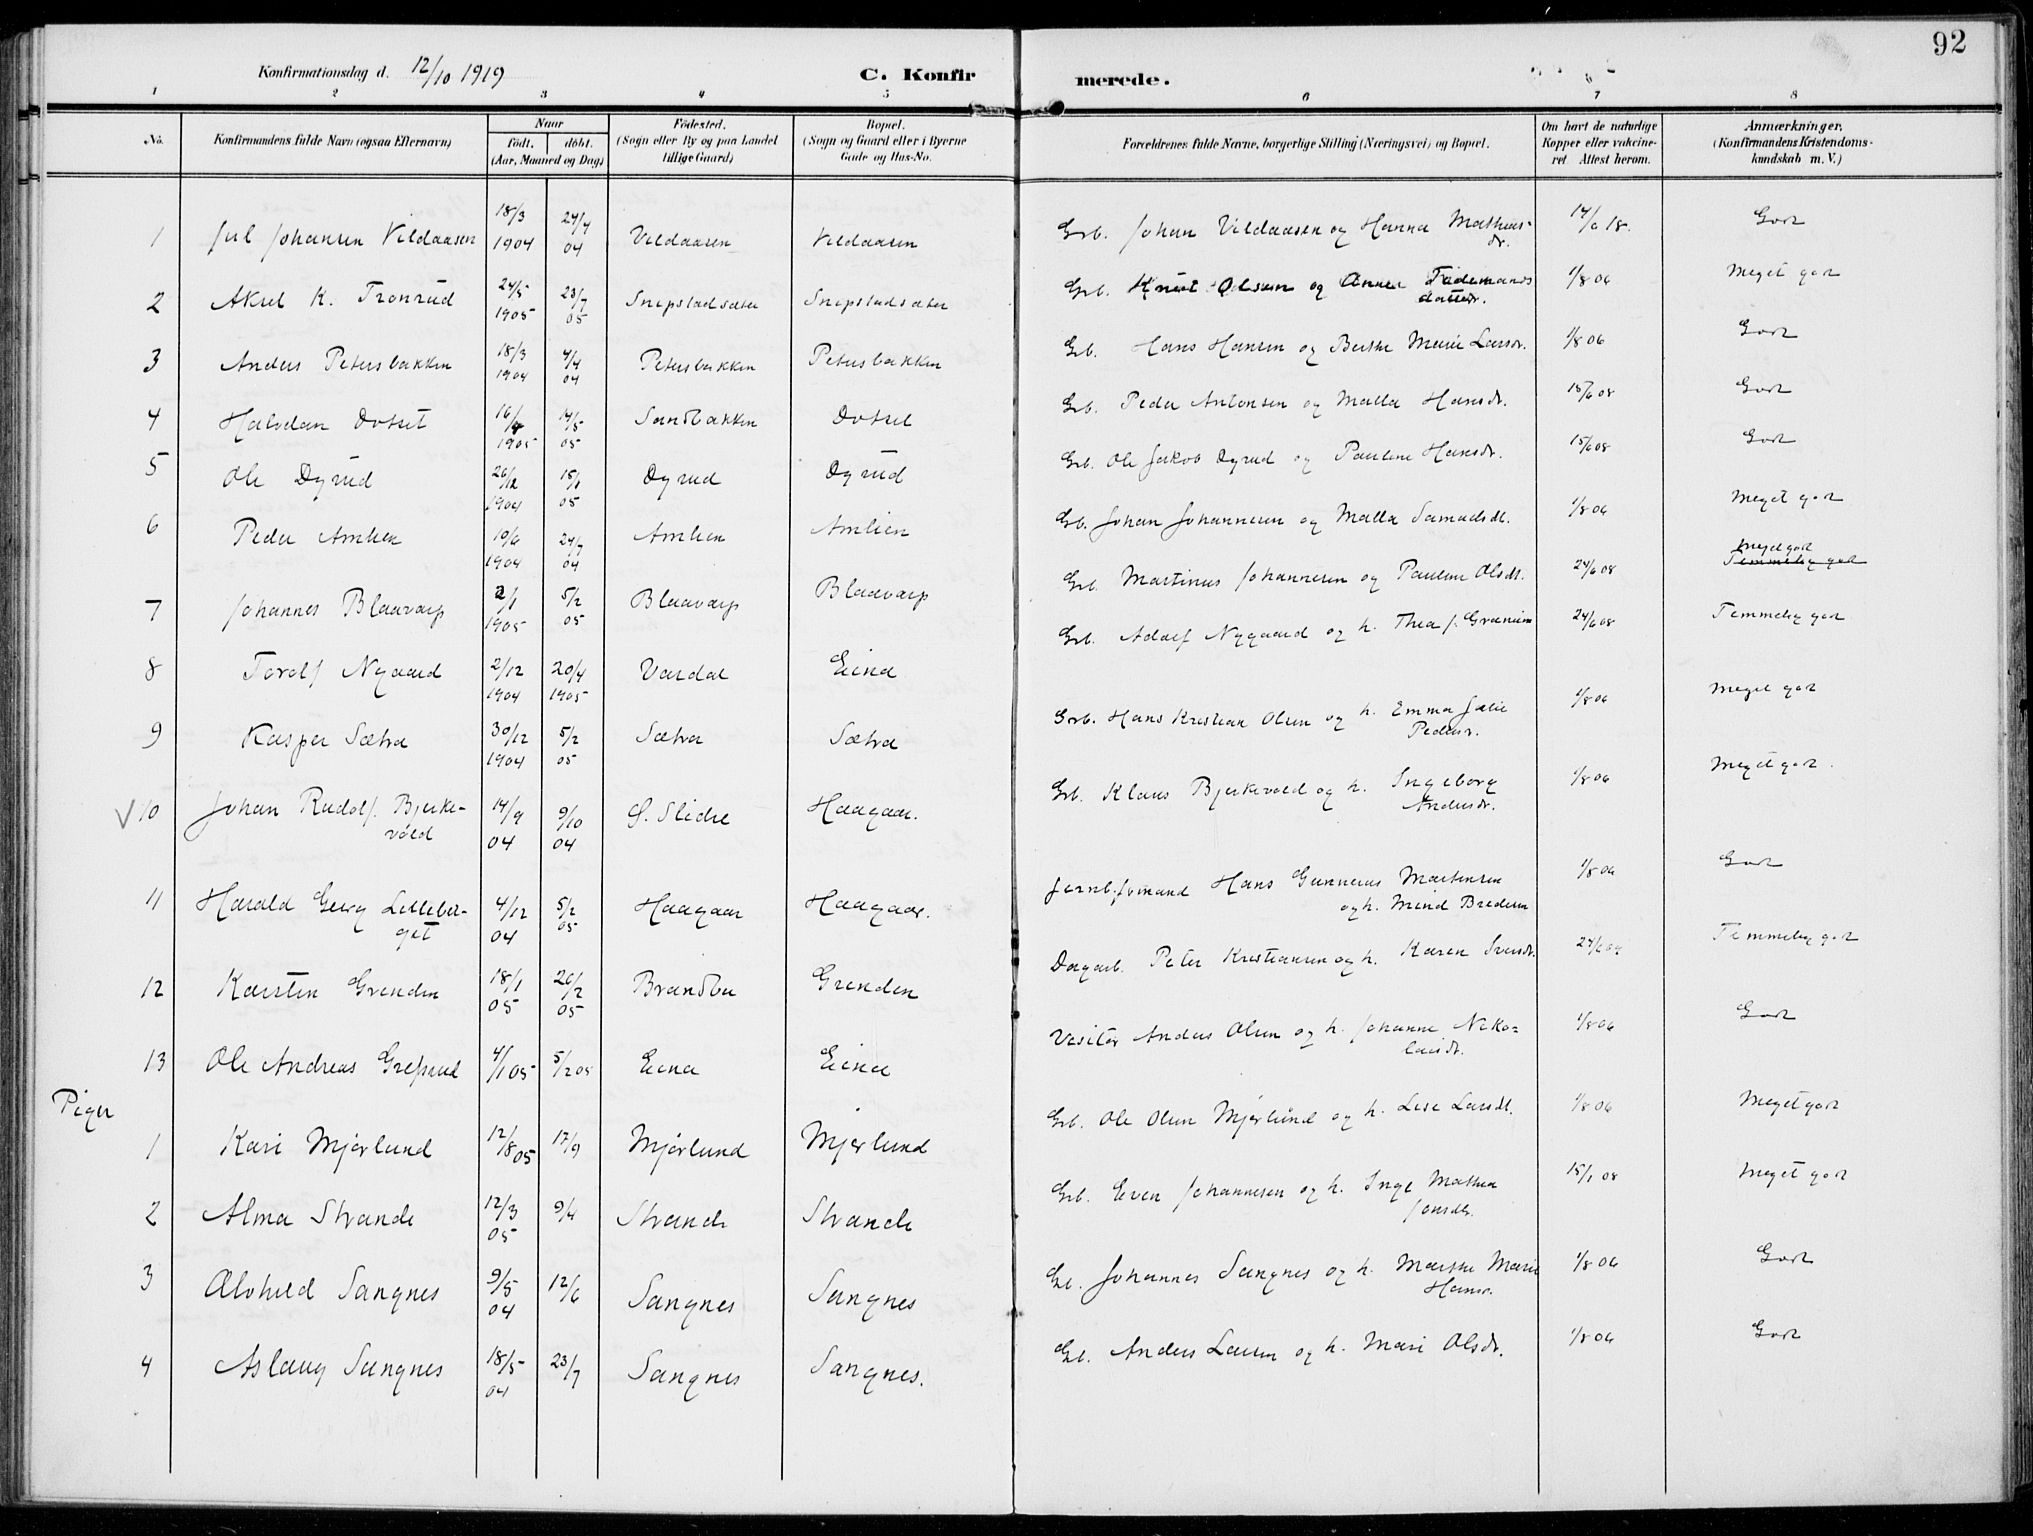 92
Konfirmationsdag d. 12/10 1919
C. Konfir merede.
1 2 3 4 5 6 7 8
No. Konfirmandens fulde Navn (ogsaa Efternavn) Naar Født. døbt. (Aar, Maaned og Dag) Fødested. (Sogn eller By og paa Landet tillige Gaard) Bopæl. (Sogn og Gaard eller i Byerne Gade og Hus-No. Forældrenes fulde Navne, borgerlige Stilling (Næringsvei) og Bopæl. Om havt de naturlige Kopper eller vakcineret Attest herom. Anmærkninger. (Konfirmandens Kristendomskundskab m. V.)
1 Jul Johansen Vildaasen 18/3 1904 24/4 04 Vildaasen Vildaasen Grb. Johan Vildaasen og Hanna Mathias-
dr. 14/6 18. Godt
2 Aksel K. Tronrud 24/5 1905 23/7 05 Snepstadsæter Snepstadsæter Grb. Knut Olsen og Anne Tidemands
datter. 1/8 06 Meget godt
3 Anders Petersbakken 18/3 1904 4/4 04 Petersbakken Petersbakken Gb. Hans Hansen og Berthe Marie Larsdr. 1/8 06 Godt
4 Halvdan Dotset 16/4 1905 14/5 05 Sandbakken Dotset Gb. Peder Antonsen og Malla Hansdr. 15/6 08 Godt
5 Ole Dyrud 26/12 1904 15/1 05 Dyrud Dyrud Grb. Ole Jakob Dyrud og Pauline Hansdr. 15/6 08 Godt
6 Peder Amlien 10/6 1904 24/7 04 Amlien Amlien Gb. Johan Johannesen og Malla Samuelsdt. 1/8 06 Meget godt
7 Johannes Blaavarp 2/1 1905 5/2 05 Blaavarp Blaavarp Grb. Martinus Johannesen og Pauline Olsdt. 24/6 08 Meget godt
Temmelig godt
8 Torolf Nygaard 2/12 1904 20/4 1905 Vardal Eina Grb. Adolf Nygaard og h. Thea J. Grønlien 24/6 08 Temmelig godt
9 Kasper Sætra 30/12 1904 5/2 05 Sætra Sætra Grb. Hans Kristian Olsen og h. Emma Julie
Pedersdr. 1/8 06 Meget godt
V 10 Johan Rudolf Bjerke-
vold 14/9 04 9/10 04 Ø. Slidre Haagaar. Grb. Klaus Bjerkevold og h. Ingeborg
Andersdr. 1/8 06 Meget godt.
11 Harald Georg Lilleber-
get 4/12 04 5/2 05 Haagaar Haagaar. Jernb.fomand Hans Gunnerius Martinsen
og h. Mina Bredesen 1/8 06 Godt
12 Karsten Grenden 18/1 05 26/2 05 Brandbu Grenden Dagarb. Peter Kristiansen og h. Karen Iversdr. 24/6 04 Temmelig godt
13 Ole Andreas Grefsrud 4/1 05 5/2 05 Eina Eina Visitør Anders Olsen og h. Johanne Niko-
laisdr. 1/8 06 Godt
Piger
1 Kari Mjørlund 12/8 05 17/9 Mjørlund Mjørlund Grb. Ole Olsen Mjørlund og h. Lise Larsdt. 1/8 06 Meget godt
2 Alma Strande 12/3 05 9/4 Strande Strande Grb. Even Johannesen og h. Inge Mathea
Jonsdtr. 15/1 08 Meget godt
3 Alvhild Sangnes 9/5 04 12/6 Sangnes Sangnes Gb. Johannes Sangnes og h. Marthe Marie
Hansdr. 1/8 06 Godt
4 Aslaug Sangnes 18/5 04 23/7 Sangnes Sangnes. Gb. Anders Larsen og h. Mari Olsdr. 1/8 06 Godt